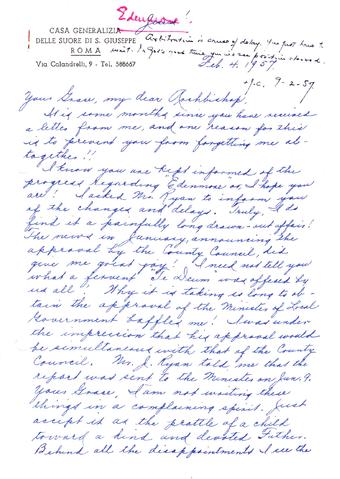 Edenmore!
CASA GENERALIZIA
DELLE SUORE DI S. GIUSEPPE
ROMA
Via Calandrelli, 9 - Tel. 588667
Arbitration is cause of delay. You just have to
wait. In God's good time you will see
Feb. 4, 1957
9-2-57
Your Grace, my dear Archbishop,
It is some months since you have received
a letter from me, and one reason for this
is to prevent you from forgetting me al-
together!!
I know you are kept informed of the
progress regarding Edenmore or I hope you
are! I asked Mr. Ryan to inform you
of the changes and delays. Truly, I do
find it a painfully long drawn-out affair!
The news in January, announcing the
approval by the County Council, did
give me great joy! I need not tell you
what a fervent Te Deum was offered by
us all! Why it is taking so long to ob-
tain the approval of the Minister of Local
Government baffles me! I was under
the impression that his approval would
be simultaneous with that of the County
Council. Mr. J. Ryan told me that the
report was sent to the Minister on Jan. 9.
Your Grace, I am not writing these
things in a complaining spirit. Just
accept it as the prattle of a child
toward a kind and devoted Father.
Behind all the disappointments I see the